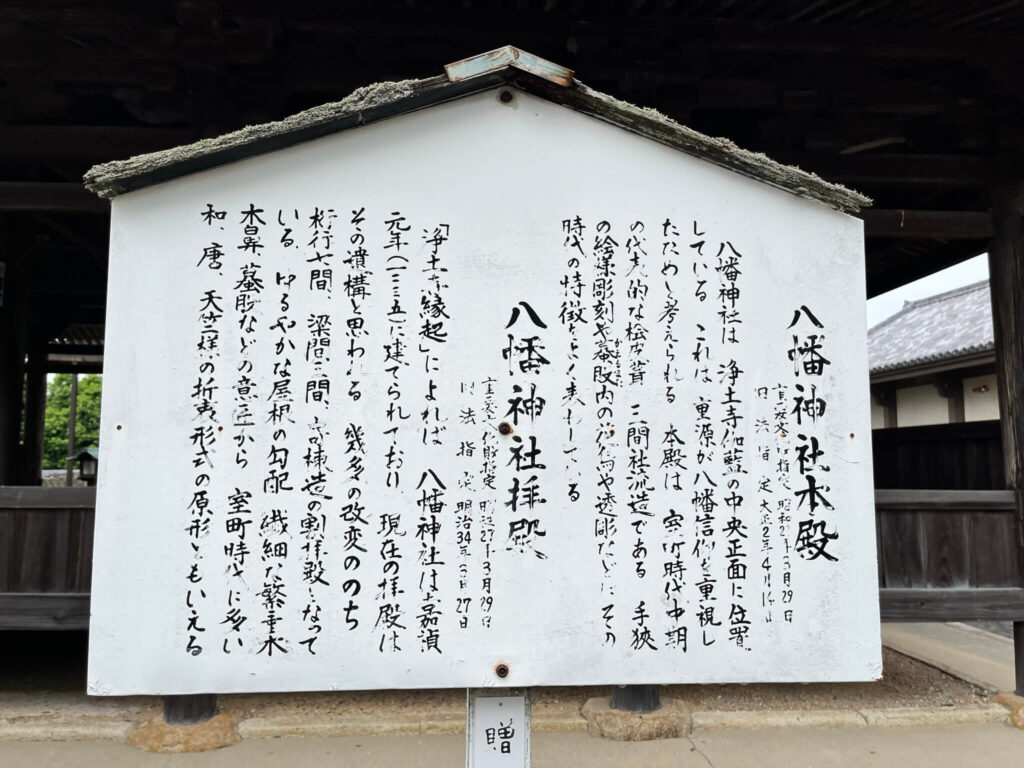 八幡神社本殿
重要文化財指定 昭和27年3月29日
旧法指定 大正2年4月14日
八幡神社は 浄土寺伽藍の中央正面に位置
している これは 重源が八幡信仰を重視し
たためと考えられる 本殿は 室町時代中期
の代表的な桧皮葺 三間社流造である 手狭
の絵様彫刻や蟇股内の や透彫などにその
時代の特徴をよく表わしている
八幡神社拝殿
重要文化財指定 昭和27年3月29日
旧法指定 明治34年3月27日
「浄土寺縁起」によれば 八幡神社は嘉禎
元年(一二三五)に建てられており 現在の拝殿は
その遺構と思われる 幾多の改変ののち
桁行七間、梁間三間、寄棟造の割拝殿となって
いる ゆるやかな屋根の勾配 繊細な繁垂木
木鼻、蟇股などの意匠から 室町時代に多い
和、唐、天竺様の折衷形式の原形ともいえる
贈